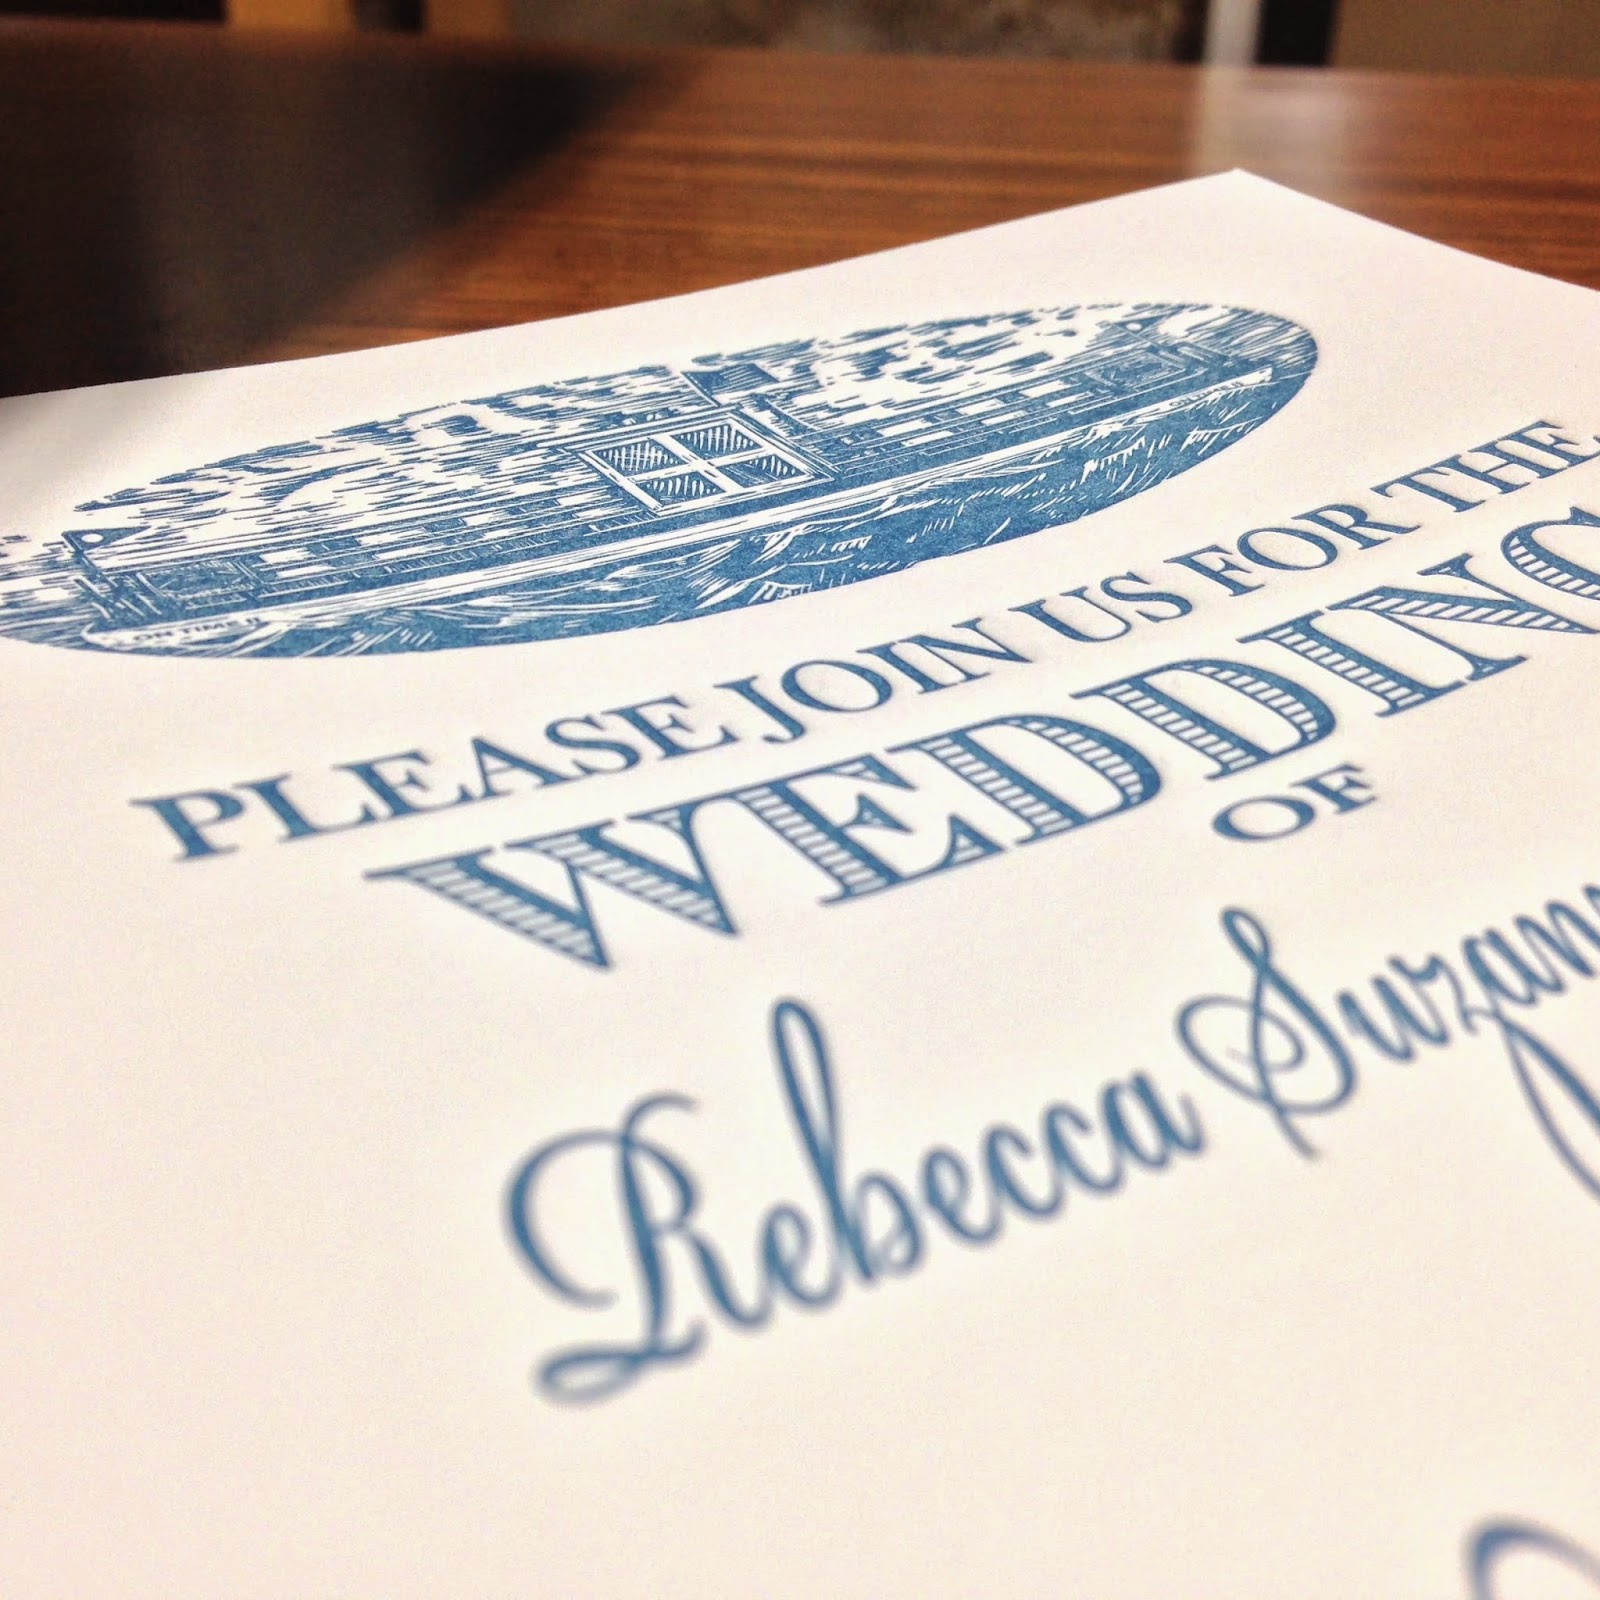 ON TIME II
PLEASE JOIN US FOR THE
WEDDING
OF
Rebecca